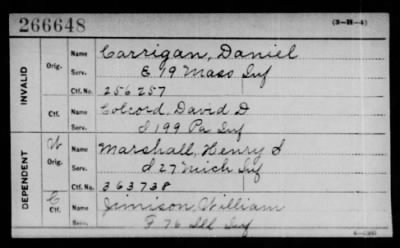 266648 (3-28-4)
INVALID
Orig. Name Carrigan, Daniel
Serv. E 19 Mass Inf
Ctf. No. 256257
Ctf. Name Colcord, David D
Serv. I 199 Pa Inf
DEPENDENT
W Orig. Name Marshall, Henry I
Serv. I 27 Mich Inf
Ctf. No. 363738
C Ctf. Name Jimison, William
Serv. F 76 Ill Inf